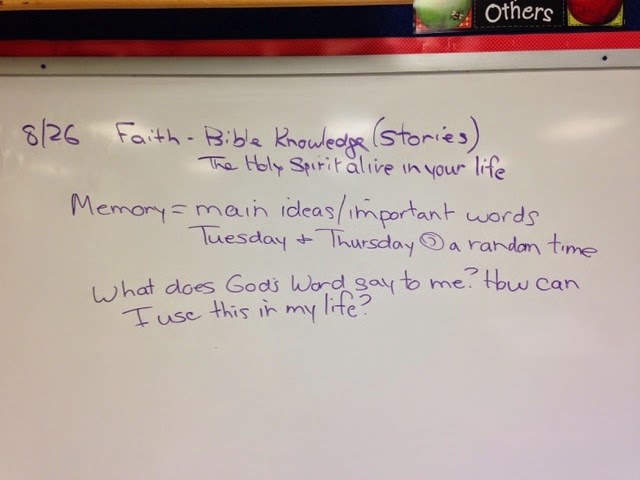 Others
8/26 Faith - Bible Knowledge (stories)
The Holy Spirit alive in your life
Memory = main ideas/important words
Tuesday + Thursday @ a random time
What does God's Word say to me? How can
I use this in my life?